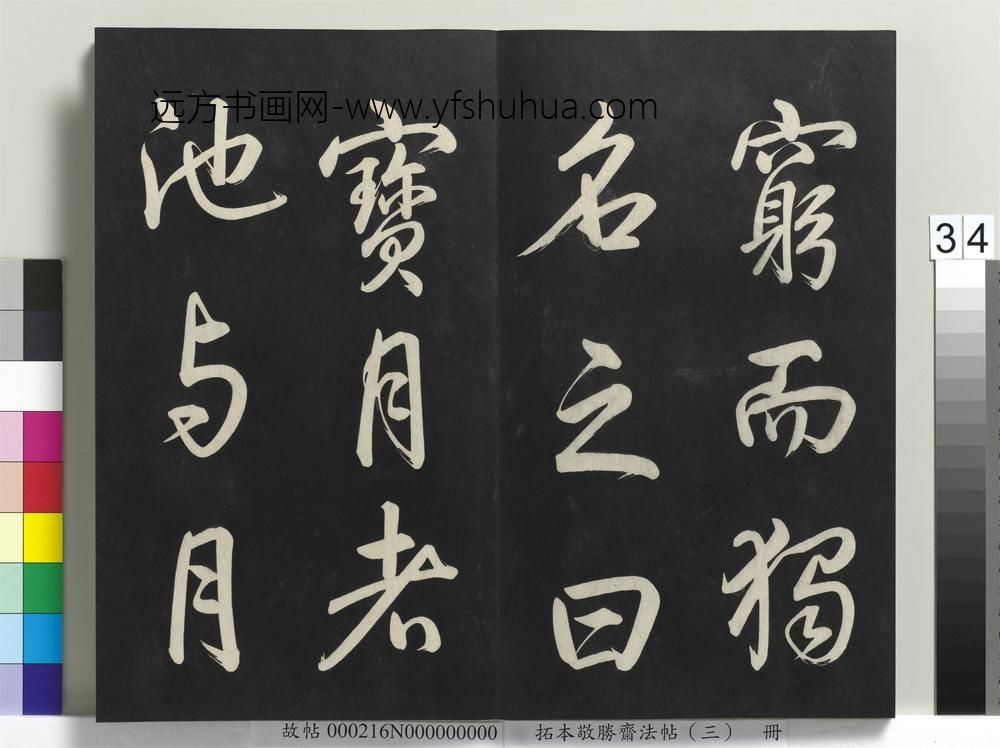 窮而獨
名之曰
寶月者
池与月
远方书画网-www.yfshuhua.com
34
故帖 000216N000000000 拓本敬勝齋法帖（三） 冊